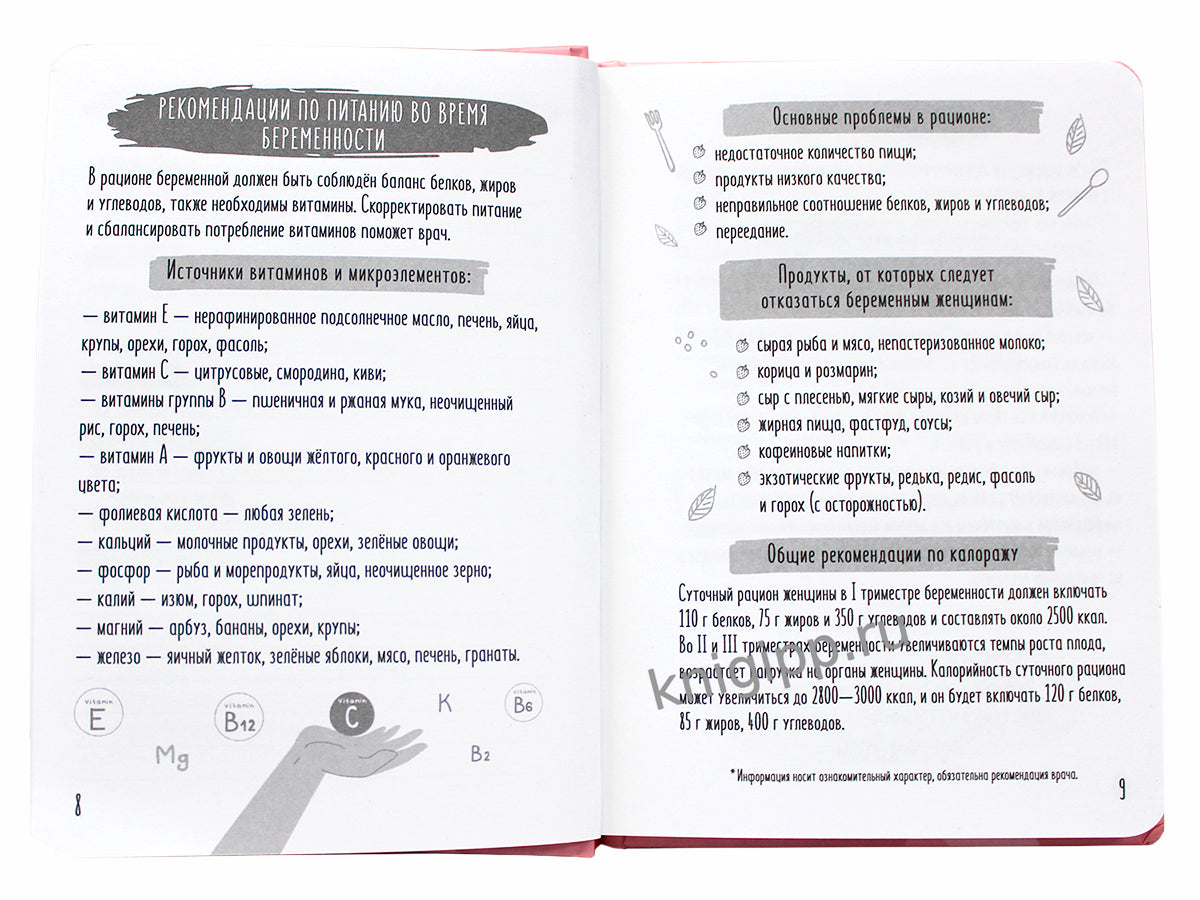 РЕКОМЕНДАЦИИ ПО ПИТАНИЮ ВО ВРЕМЯ
БЕРЕМЕННОСТИ
В рационе беременной должен быть соблюдён баланс белков, жиров
и углеводов, также необходимы витамины. Скорректировать питание
и сбалансировать потребление витаминов поможет врач.
Источники витаминов и микроэлементов:
— витамин Е — нерафинированное подсолнечное масло, печень, яйца,
крупы, орехи, горох, фасоль;
— витамин С — цитрусовые, смородина, киви;
— витамины группы В — пшеничная и ржаная мука, неочищенный
рис, горох, печень;
— витамин А — фрукты и овощи жёлтого, красного и оранжевого
цвета;
— фолиевая кислота — любая зелень;
— кальций — молочные продукты, орехи, зелёные овощи;
— фосфор — рыба и морепродукты, яйца, неочищенное зерно;
— калий — изюм, горох, шпинат;
— магний — арбуз, бананы, орехи, крупы;
— железо — яичный желток, зелёные яблоки, мясо, печень, гранаты.
vitamin E
vitamin B12
vitamin C
K
vitamin B6
Mg
B2
8
Основные проблемы в рационе:
недостаточное количество пищи;
продукты низкого качества;
неправильное соотношение белков, жиров и углеводов;
переедание.
Продукты, от которых следует
отказаться беременным женщинам:
сырая рыба и мясо, непастеризованное молоко;
корица и розмарин;
сыр с плесенью, мягкие сыры, козий и овечий сыр;
жирная пища, фастфуд, соусы;
кофеиновые напитки;
экзотические фрукты, редька, редис, фасоль
и горох (с осторожностью).
Общие рекомендации по калоражу
Суточный рацион женщины в I триместре беременности должен включать
110 г белков, 75 г жиров и 350 г углеводов и составлять около 2500 ккал.
Во II и III триместрах беременности увеличиваются темпы роста плода,
возрастает нагрузка на органы женщины. Калорийность суточного рациона
может увеличиться до 2800—3000 ккал, и он будет включать 120 г белков,
85 г жиров, 400 г углеводов.
knigipp.ru
* Информация носит ознакомительный характер, обязательна рекомендация врача.
9